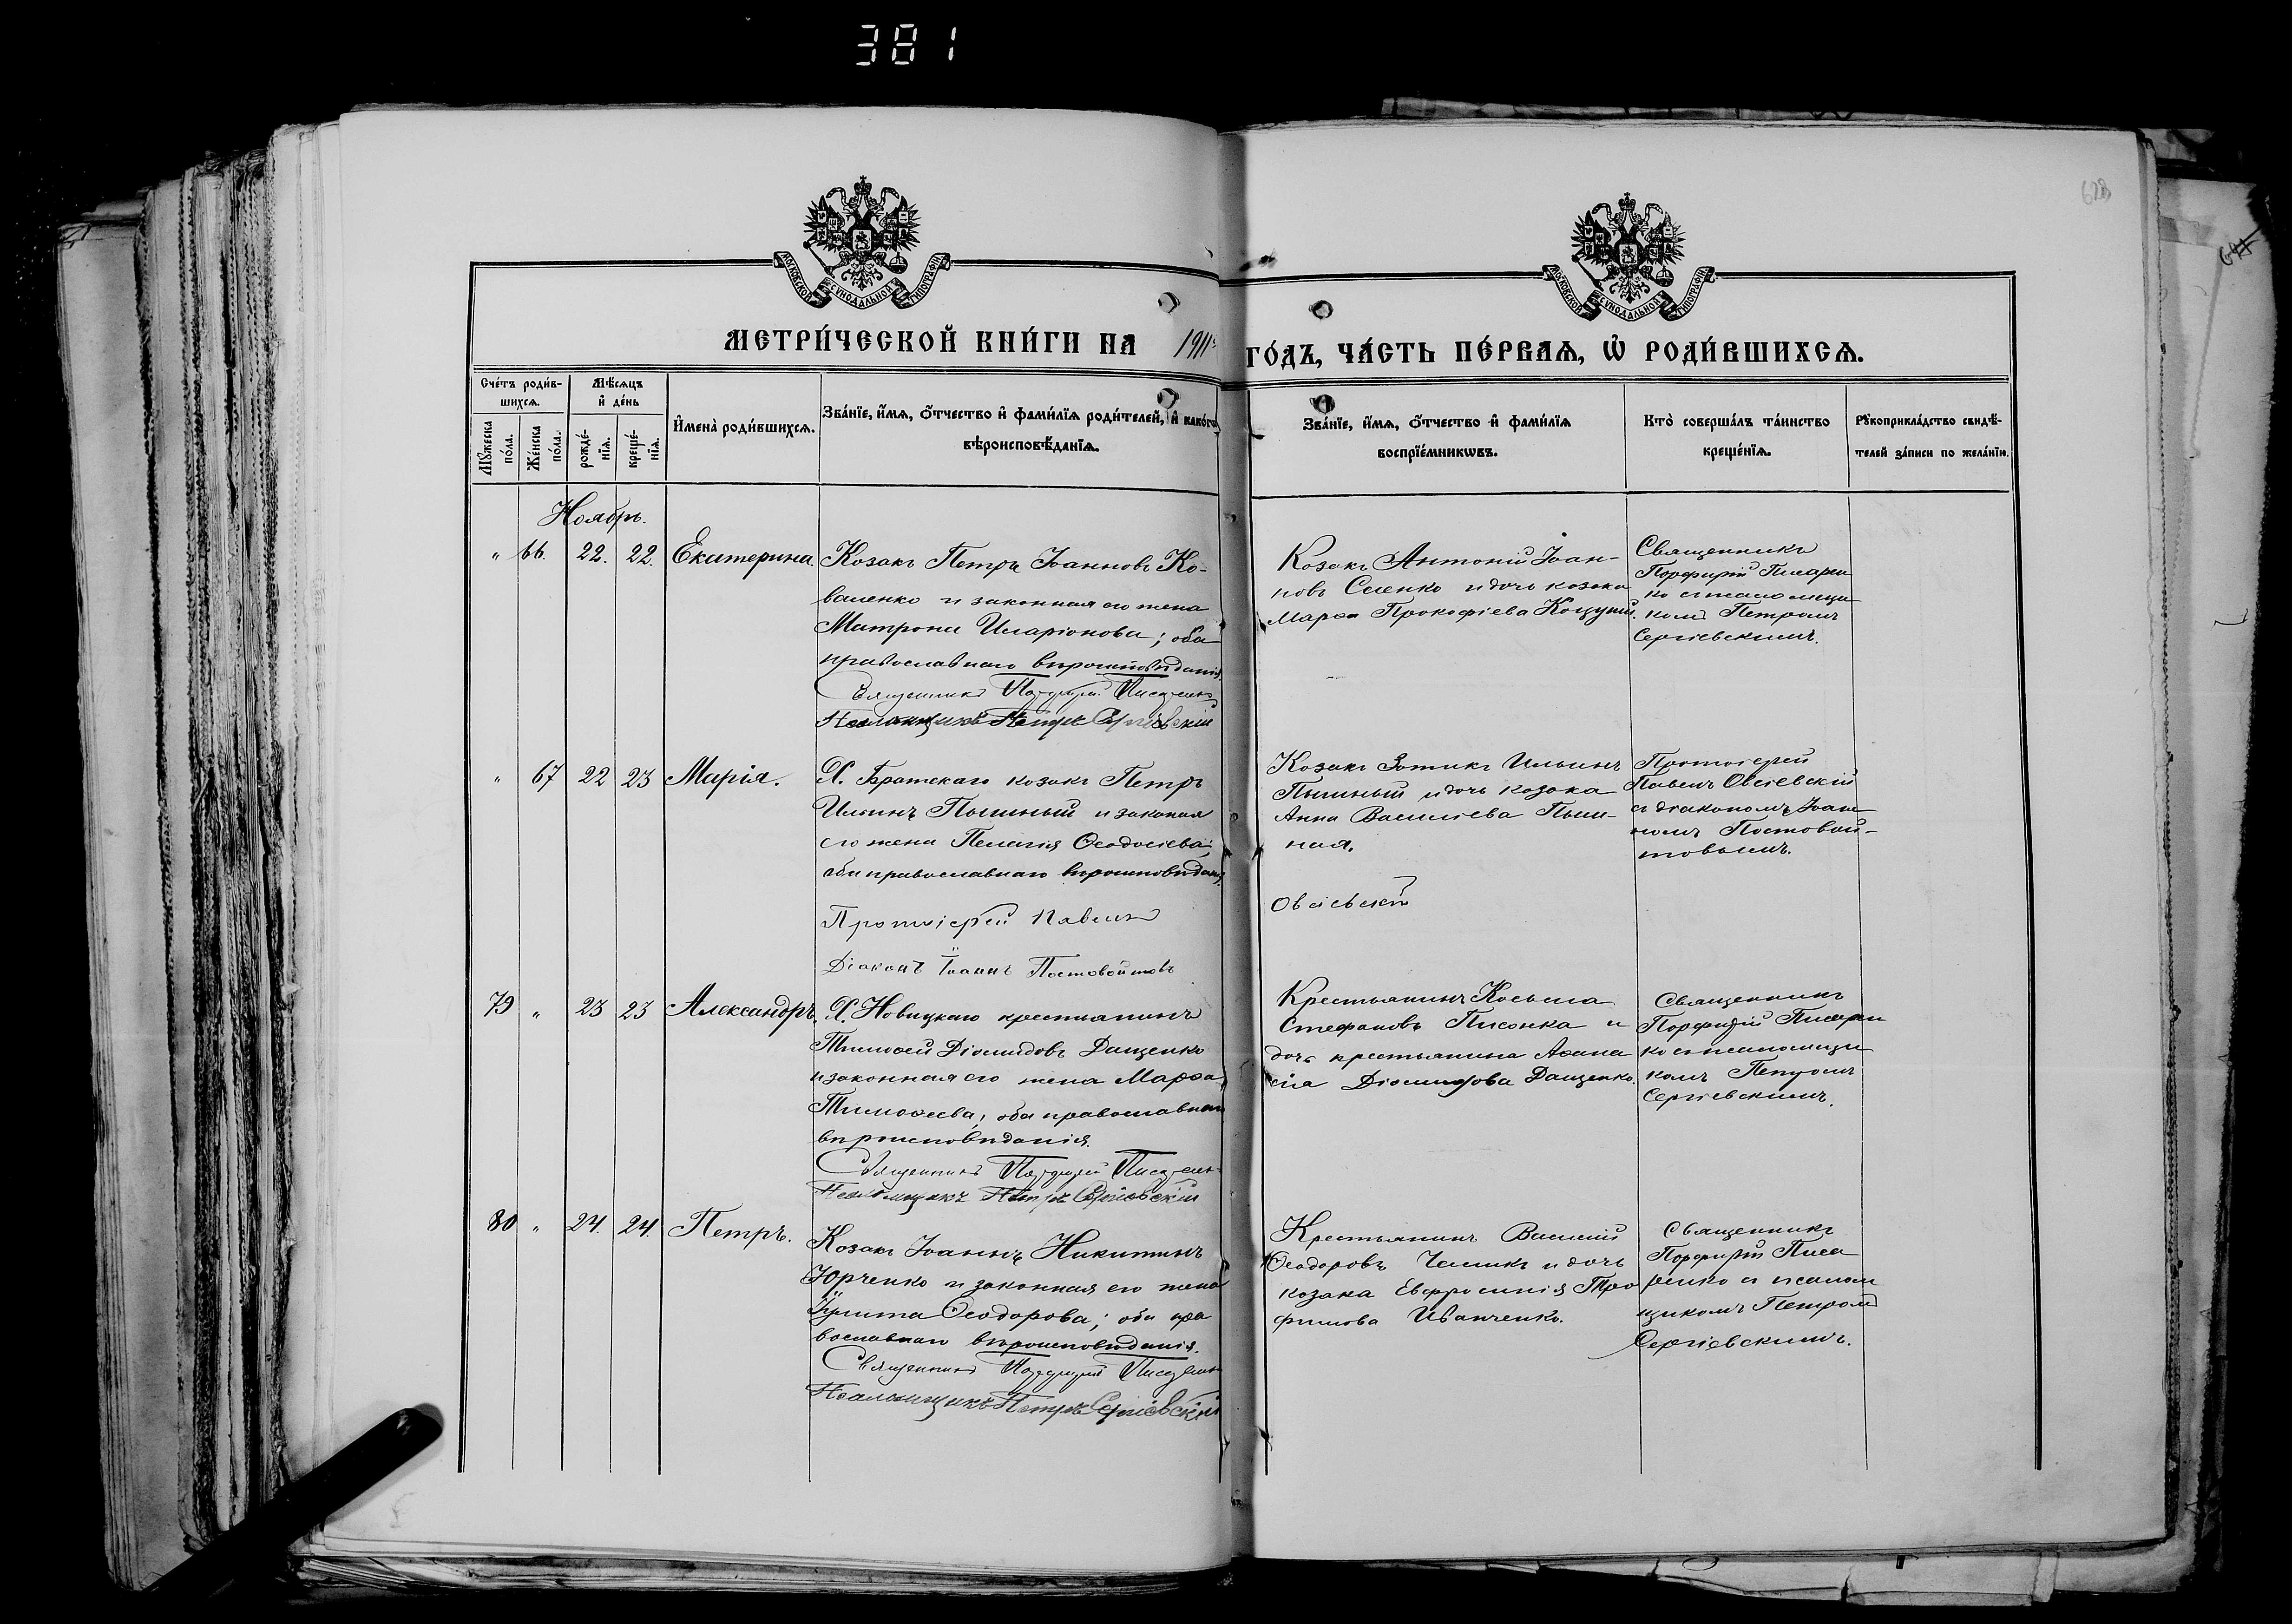 381
628
МОСКОВСКОЙ СѴНОДАЛЬНОЙ ТИПОГРАФІИ
МОСКОВСКОЙ СѴНОДАЛЬНОЙ ТИПОГРАФІИ
МЕТРИ́ЧЕСКОЙ КНИ́ГИ НА 1911
ГО́ДЪ, ЧА́СТЬ ПЕ́РВАѦ, Ѡ҆ РОДИ́ВШИХСѦ.
Сче́тъ роди́в-
шихсѧ.
Мꙋ́жеска по́ла.
Же́нска по́ла.
Мѣ́сѧцъ
и҆ де́нь
рожде́-
нїѧ.
креще́-
нїѧ.
И҆мена̀ роди́вшихсѧ.
Зва́нїе, и҆́мѧ, ѻ҆́тчество и҆ фами́лїѧ роди́телей, и҆ како́гѡ
вѣроисповѣ́данїѧ.
Зва́нїе, и҆́мѧ, ѻ҆́тчество и҆ фами́лїѧ
воспрїе́мникѡвъ.
Кто̀ соверша́лъ та́инство
креще́нїѧ.
Рꙋкоприкла́дство свидѣ́-
телей за́писи по жела́нїю.
Ноябрь.
" 66. 22. 22. Екатерина.
Козакъ Петръ Іоанновъ Ко-
валенко и законная его жена
Матрона Иларіонова; оба
православнаго вѣроисповѣданія.
Священникъ Порфирій Писаренко
Псаломщикъ Петръ Сергіевскій
Козакъ Антоній Іоан-
новъ Сененко и дочь козака
Марѳа Прокофіева
Священникъ
Порфирій Писарен
ко съ псаломщи
комъ Петромъ
Сергіевскимъ.
" 67 22 23 Марія.
Х. Братскаго козакъ Петръ
Ильинъ Пышный и законая
его жена Пелагія Ѳеодосіева;
оба православнаго вѣроисповѣданія.
Протоіерей Павелъ
Овсіевскій
Діаконъ Іоаннъ Постовойтовъ
Козакъ Зотикъ Ильинъ
Пышный и дочь козака
Анна Василіева Пыш-
ная.
Протоіерей
Павелъ Овсіевскій
съ діакономъ Іоан
номъ Постовой-
товымъ.
79 " 23 23 Александръ.
Х. Новицкаго крестьянинъ
Тимоѳей Діомидовъ Дащенко
и законная его жена Марѳа
Тимоѳеева; оба православнаго
вѣроисповѣданія.
Священникъ Порфирій Писаренко
Псаломщикъ Петръ Сергіевскій
Крестьянинъ Косьма
Стефановъ Писонка и
дочь крестьянина Аѳана
сія Діомидова Дащенко.
Священникъ
Порфирій Писарен
ко съ псаломщи
комъ Петромъ
Сергіевскимъ.
80 " 24. 24. Петръ.
Козакъ Іоаннъ Никитинъ
Юрченко и законная его жена
Ѳеодорова; оба пра
вославнаго вѣроисповѣданія.
Священникъ Порфирій Писаренко
Псаломщикъ Петръ Сергіевскій
Крестьянинъ Василій
Ѳеодоровъ и дочь
козака Евфросинія Тро
фимова Иванченко.
Священникъ
Порфирій Писа
ренко съ псалом
щикомъ Петромъ
Сергіевскимъ.